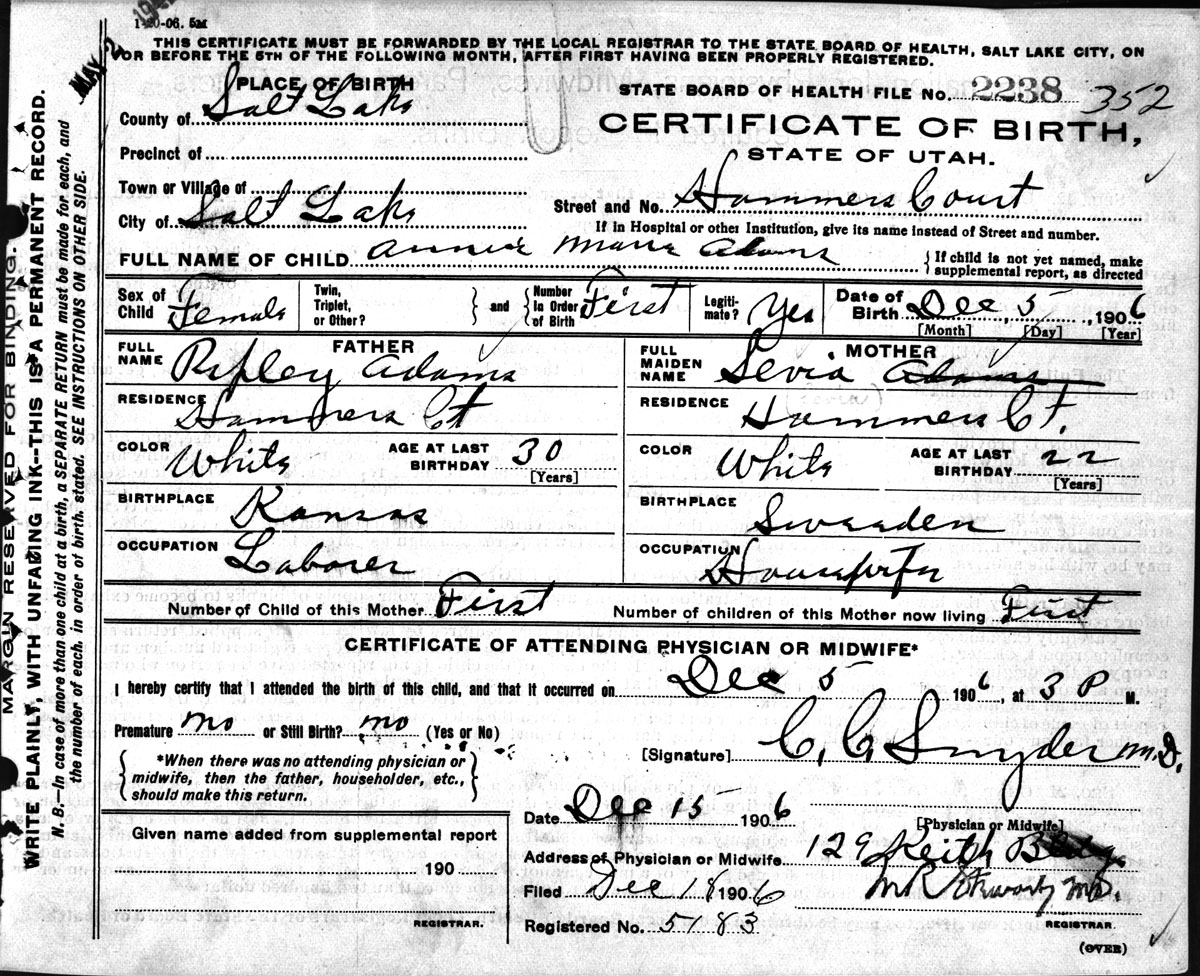 1-20-06. 5M
THIS CERTIFICATE MUST BE FORWARDED BY THE LOCAL REGISTRAR TO THE STATE BOARD OF HEALTH, SALT LAKE CITY, ON
OR BEFORE THE 5TH OF THE FOLLOWING MONTH, AFTER FIRST HAVING BEEN PROPERLY REGISTERED.
MAY 2
MARGIN RESERVED FOR BINDING.
WRITE PLAINLY, WITH UNFADING INK--THIS IS A PERMANENT RECORD.
N. B.—In case of more than one child at a birth, a SEPARATE RETURN must be made for each, and
the number of each, in order of birth, stated. SEE INSTRUCTIONS ON OTHER SIDE.
PLACE OF BIRTH
County of Salt Lake
Precinct of
Town or Village of
City of Salt Lake
STATE BOARD OF HEALTH FILE No. 2238 352
CERTIFICATE OF BIRTH,
STATE OF UTAH.
Street and No. Hammers Court
If in Hospital or other Institution, give its name instead of Street and number.
FULL NAME OF CHILD Annie Marie Adams
If child is not yet named, make
supplemental report, as directed
Sex of Child Female
Twin, Triplet, or Other?
and Number In Order of Birth First
Legitimate? Yes
Date of Birth Dec 5, 1906
[Month] [Day] [Year]
FATHER
FULL NAME Ripley Adams
RESIDENCE Hammers Ct
COLOR White AGE AT LAST BIRTHDAY 30
[Years]
BIRTHPLACE Kansas
OCCUPATION Laborer
MOTHER
FULL MAIDEN NAME Sevia Adams
RESIDENCE Hammers Ct.
COLOR White AGE AT LAST BIRTHDAY 22
[Years]
BIRTHPLACE Sweaden
OCCUPATION Housewife
Number of Child of this Mother First Number of children of this Mother now living First
CERTIFICATE OF ATTENDING PHYSICIAN OR MIDWIFE*
I hereby certify that I attended the birth of this child, and that it occurred on Dec 5 1906, at 3 P M.
Premature no or Still Birth? no (Yes or No)
*When there was no attending physician or
midwife, then the father, householder, etc.,
should make this return.
[Signature] C. C. Snyder M.D.
[Physician or Midwife]
Date Dec 15 1906
Address of Physician or Midwife 129 Keith Bldg
Filed Dec 18 1906
REGISTRAR.
Registered No. 5183
Given name added from supplemental report
190
REGISTRAR.
(OVER)